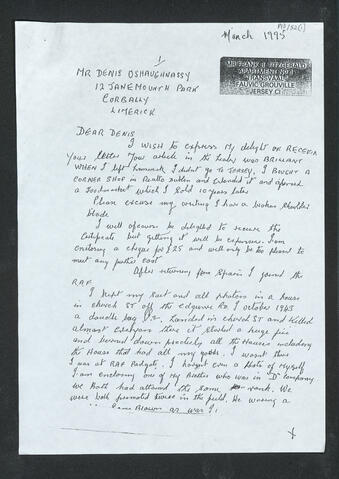 March 1995
1
MR DENIS OSHAUGHNASSY
12 JANEMOUNTH PARK
CORBALLY
LIMERICK
MR FRANK B FITZGERALD
APARTMENT NO 1
TRANSVAAL
FAUVIC GROUVILLE
JERSEY C.I
DEAR DENIS
I WISH to express My delight on RECEIVIN
Your letter Your article in the leader was BRILLIANT
WHEN I left Limerick I didnt go to JERSEY, I BOUGHT A
CORNER SHOP in Rialto Dublin and Extended it and opened
a Foodmarket which I Sold 10 years later
Please excuse my writing I have a broken Shoulder
blade
I will of course be delighted to receive the
Certificate but getting it will be expensive. I am
enclosing a cheque for £25 and will only be too pleased to
meet any further cost
After returning from Spain I joined the
RAF.
I kept my suit and all photos in a house
in church ST off the edgware Rd I october 1943
a double bag landed in church ST and Killed
almost Everyone there it started a huge fire
and burned down practicly all the Houses including
the House that had all my goods. I wasnt there
I was at RAF Padgate. I havent even a Photo of Myself
I am enclosing one of My Brother who was in "D" Company
We Both had attained the same rank. We
were both promoted twice in the field. He wearing a
Sam Brown as was I.